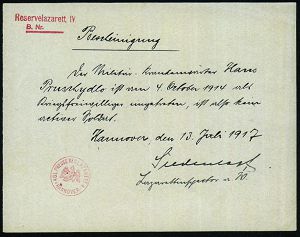 Reservelazarett IV
B. Nr.
Bescheinigung
Der Militär-Krankenwärter Hans
Pruschydlo ist am 4. October 1914 als
Kriegsfreiwilliger eingetreten, ist also kein
activer Soldat.
Hannover, den 13. Juli 1917
Lazarettinspektor a. W.
HANNOVER